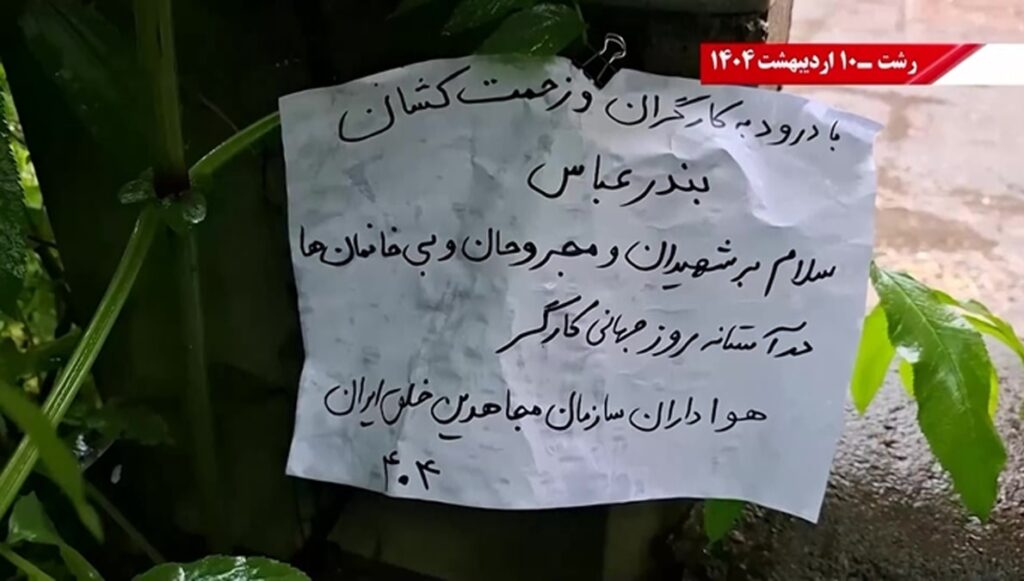 رشت ــ ۱۰ اردیبهشت ۱۴۰۴
با درود به کارگران و زحمت کشان
بندر عباس
سلام بر شهیدان و مجروحان و بی خانمان ها
در آستانه روز جهانی کارگر
هواداران سازمان مجاهدین خلق ایران
۴۰۴